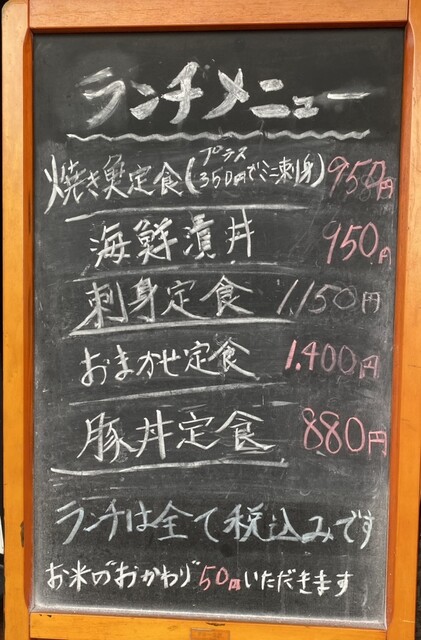 ランチメニュー
焼き魚定食(プラス350円でミニ刺身) 950円
海鮮漬丼 950円
刺身定食 1,150円
おまかせ定食 1.400円
豚丼定食 880円
ランチは全て税込みです
お米のおかわり50円いただきます